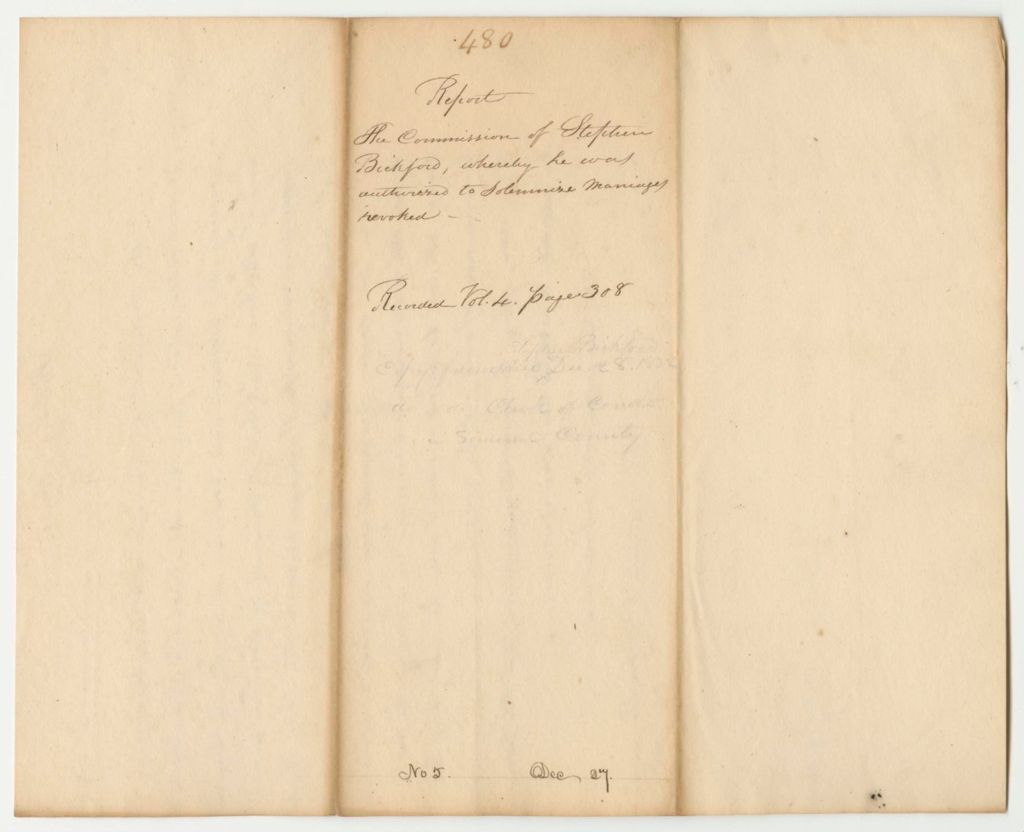 480
Report
The Commission of Stephen
Bickford, whereby he was
authorized to Solemnize Marriages
revoked -
Recorded Vol. 4. page 308
Stephen Bickford
Dec 28. 1832
Clerk of Courts
County
No 5. Dec 27.